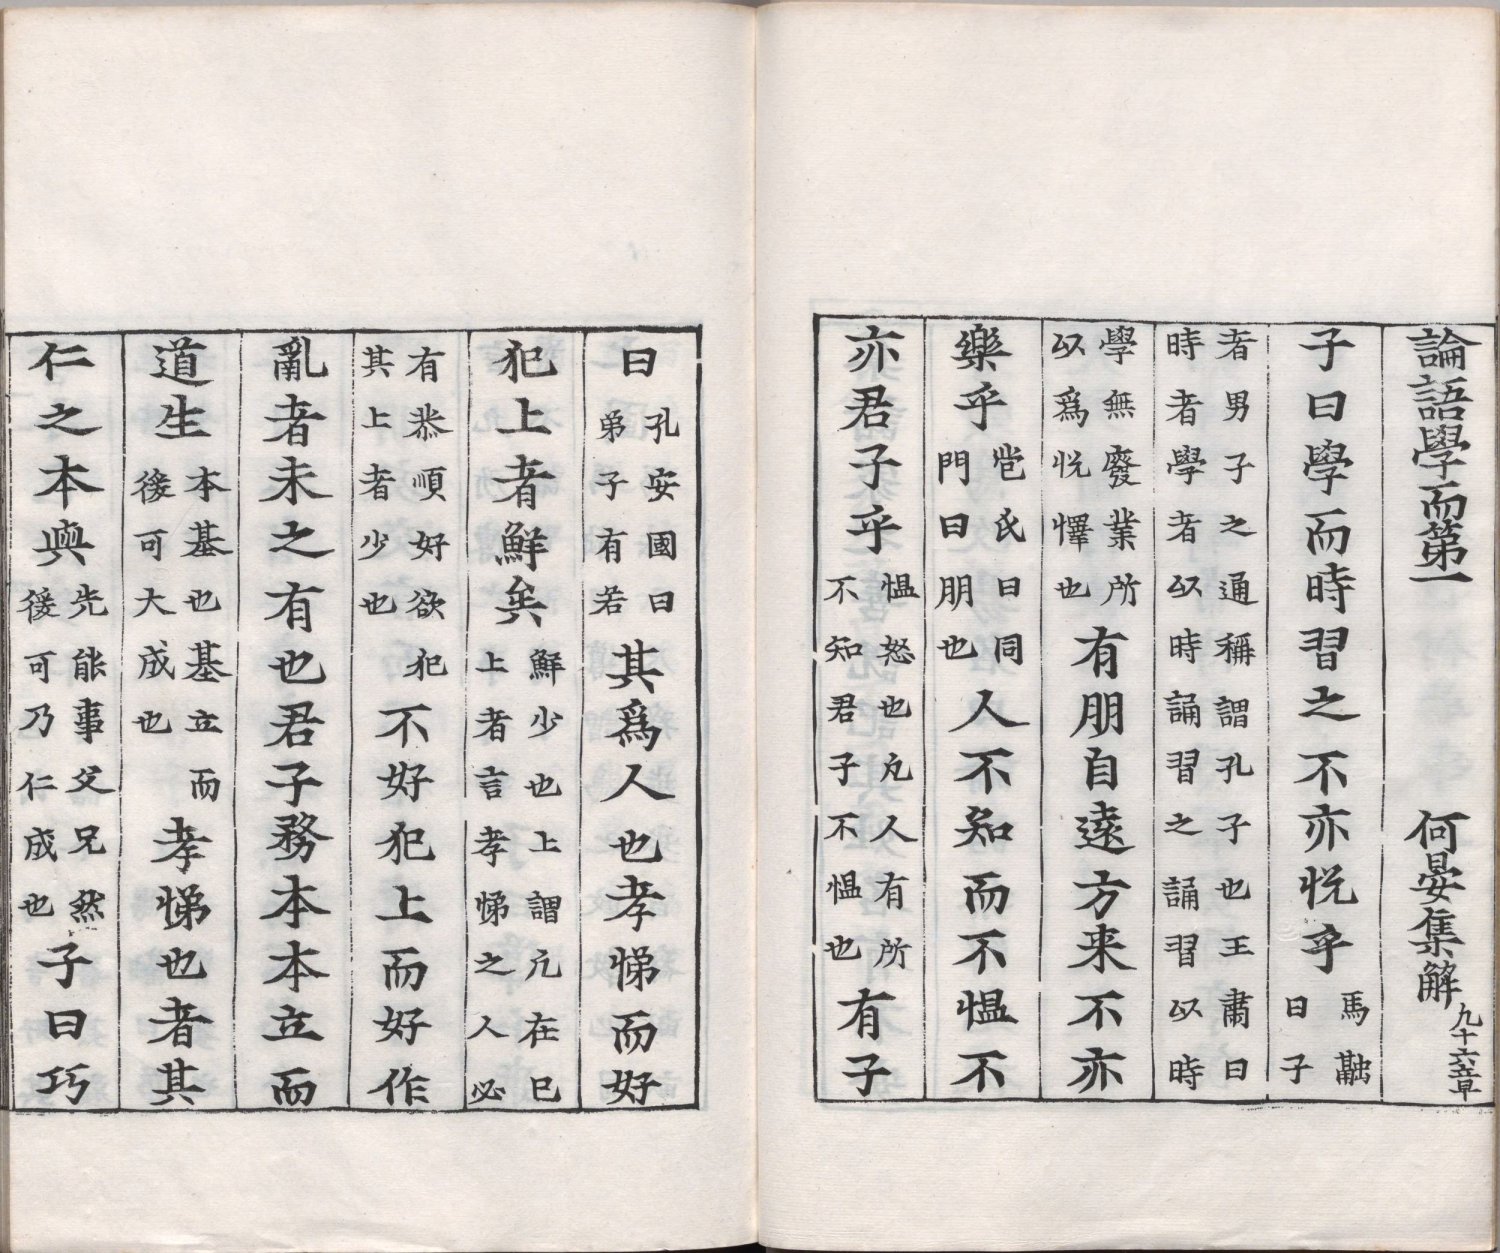 論語學而第一　何晏集解九十六章
子曰學而時習之不亦悦乎馬融曰子
者男子之通稱謂孔子也王肅曰時者學者以時誦習之誦習以時
學無廢業所以爲悦懌也有朋自遠方来不亦
樂乎苞氏曰同門曰朋也人不知而不愠不
亦君子乎愠怒也凡人有所不知君子不愠也有子
曰孔安國曰弟子有若其爲人也孝悌而好
犯上者鮮矣鮮少也上謂凡在已上者言孝悌之人必
有恭順好欲犯其上者少也不好犯上而好作
亂者未之有也君子務本本立而
道生本基也基立而後可大成也孝悌也者其
仁之本與先能事父兄然後可乃仁成也子曰巧